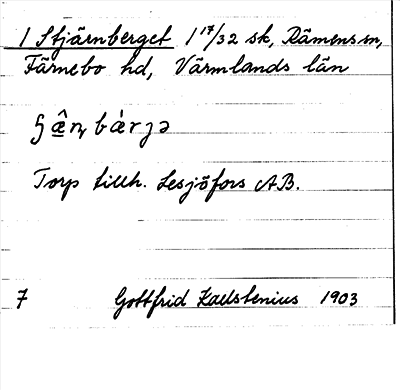 1 Stjärnberget 1 17/32 sk, Rämens sn,
Färnebo hd, Värmlands län
Torp tillh. Lesjöfors AB.
7 Gottfrid Kallstenius 1903